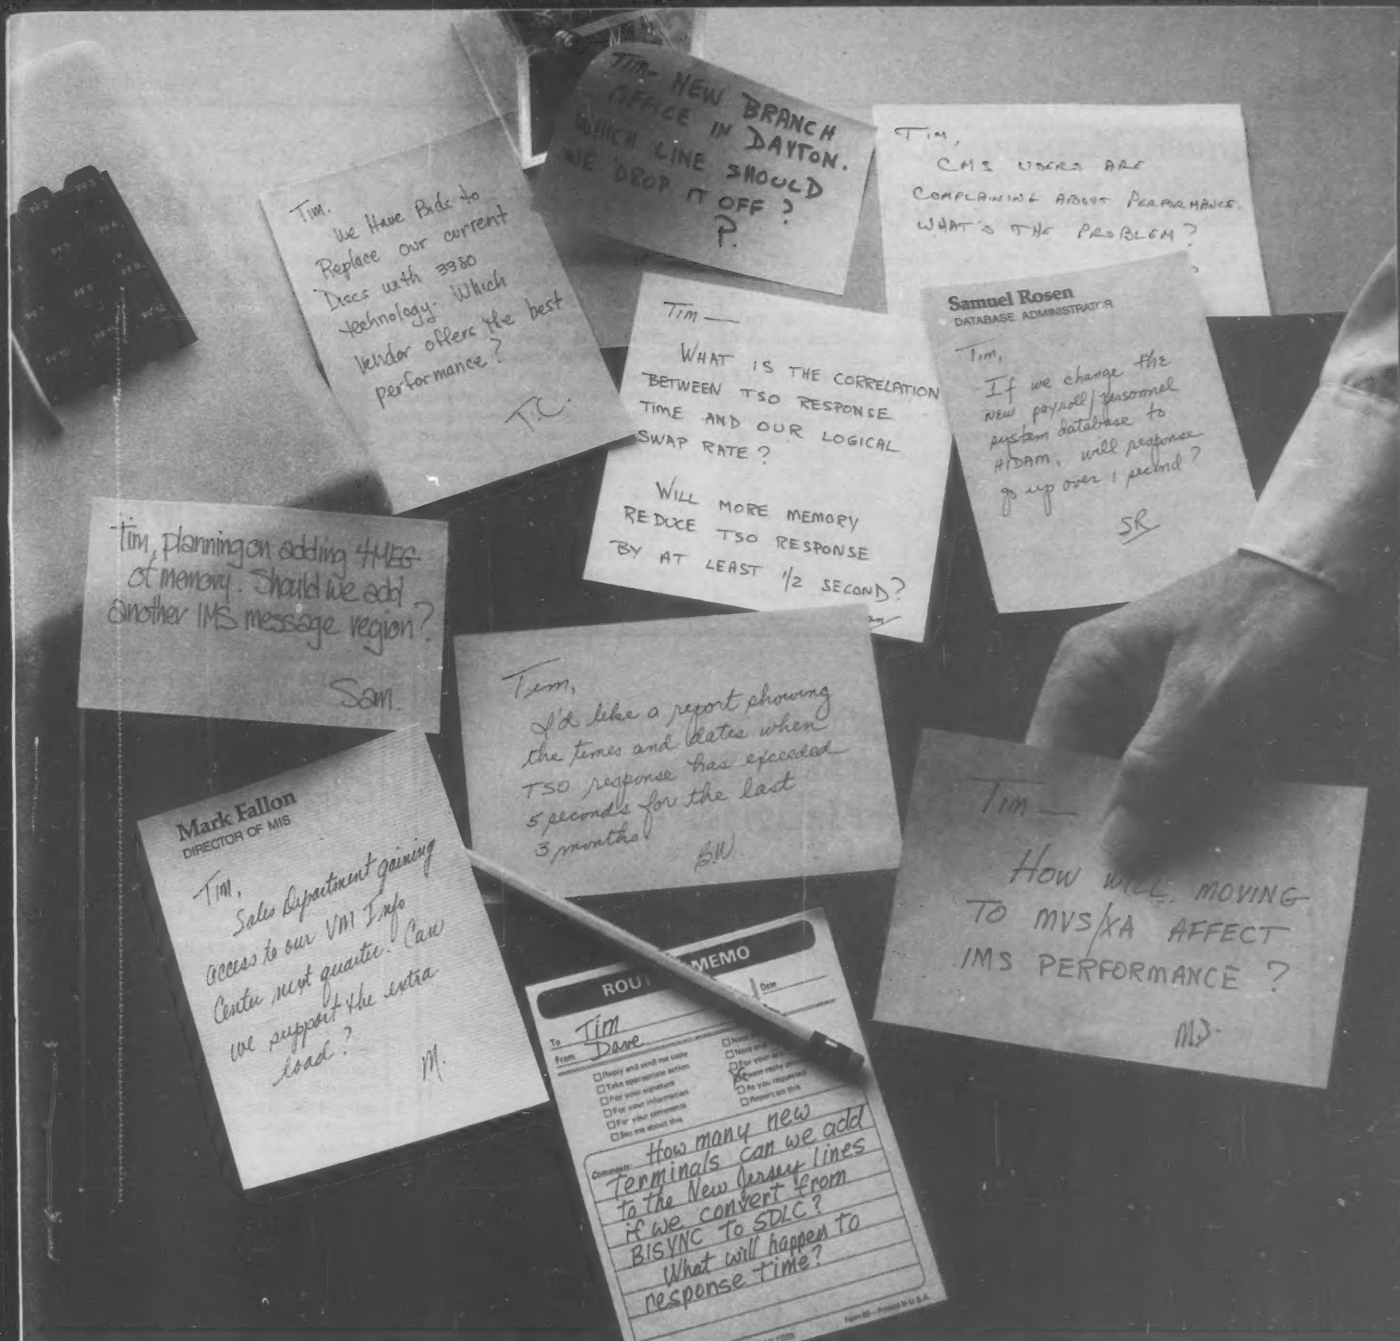 Tim- NEW BRANCH
OFFICE IN DAYTON.
WHICH LINE SHOULD
WE DROP IT OFF?
P.
Tim,
CMS USERS ARE
COMPLAINING ABOUT PERFORMANCE.
WHAT'S THE PROBLEM?
Tim.
We Have Bids to
Replace our current
Discs with 3380
technology. Which
Vendor offers the best
performance?
T.C.
Tim —
WHAT IS THE CORRELATION
BETWEEN TSO RESPONSE
TIME AND OUR LOGICAL
SWAP RATE?
WILL MORE MEMORY
REDUCE TSO RESPONSE
BY AT LEAST 1/2 SECOND?
Samuel Rosen
DATABASE ADMINISTRATOR
Tim,
If we change the
new payroll/personnel
system database to
HIDAM, will response
go up over 1 second?
SR
Tim, planning on adding 4MEG
of memory. Should we add
another IMS message region?
Sam.
Tim,
I'd like a report showing
the times and dates when
TSO response has exceeded
5 seconds for the last
3 months.
B.W.
Mark Fallon
DIRECTOR OF MIS
Tim,
Sales Department gaining
access to our VM Info
Center next quarter. Can
we support the extra
load?
M.
Tim —
HOW WILL MOVING
TO MVS/XA AFFECT
IMS PERFORMANCE?
ROUT MEMO
To Tim
Date
From Dave
Reply and send me copy
Take appropriate action
For your signature
For your information
For your comments
See me about this
As you requested
Report on this
Comments: How many new
terminals can we add
to the New Jersey lines
if we convert from
BISYNC TO SDLC?
What will happen to
response time?
PF2 PF3
PF5 PF6